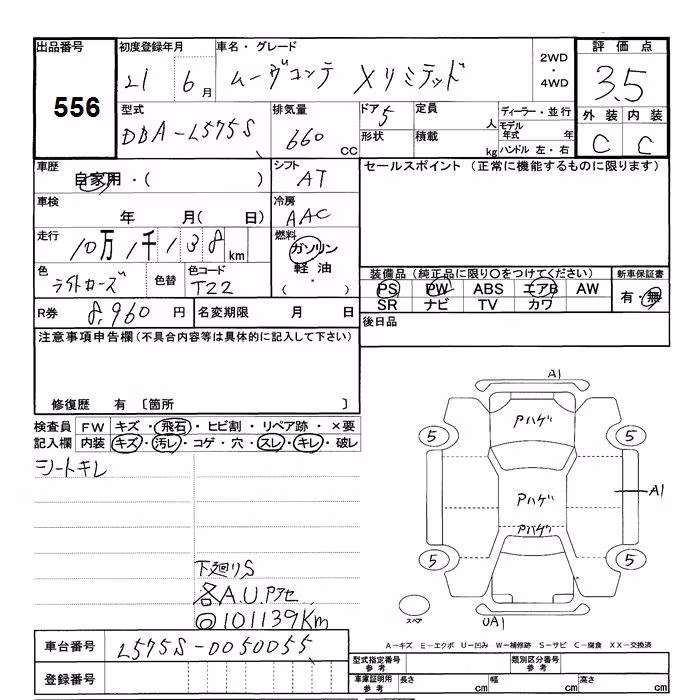 出品番号 初度登録年月 車名・グレード 2WD ・ 4WD 評価点
556 21 6月 ムーヴコンテ Xリミテッド 3.5
型式 排気量 ドア 5 定員 人 ディーラー・並行 外装 内装
DBA-L575S 660 CC 形状 積載 kg モデル年式 年 ハンドル 左・右 C C
車歴 シフト セールスポイント (正常に機能するものに限ります)
自家用・( ) AT
車検 冷房
年 月( 日) AAC
走行 燃料
10万1千138km ガソリン
色 色替 色コード 軽油
ライトローズ T22 ( ・ )
装備品(純正品に限り○をつけてください) 新車保証書
PS PW ABS エアB AW 有・無
SR ナビ TV カワ
R券 8,960 円 名変期限 月 日 後日品
注意事項申告欄(不具合内容等は具体的に記入して下さい)
修復歴 有 〔箇所 〕
検査員 FW キズ・飛石・ヒビ割・リペア跡・×要
記入欄 内装 キズ・汚レ・コゲ・穴・スレ・キレ・破レ
シートキレ
A1
Pハゲ
5 5
Pハゲ A1
Pハゲ
5 5
スペア UA1
下廻りS
各A.U.Pアセ
◎101139Km
A-キズ E-エクボ U-凹み W-補修跡 S-サビ C-腐食 XX-交換済
車台番号 L575S-0050055
型式指定番号 参考 類別区分番号 参考
登録番号
車庫証明用 参考 長さ cm 幅 cm 高さ cm